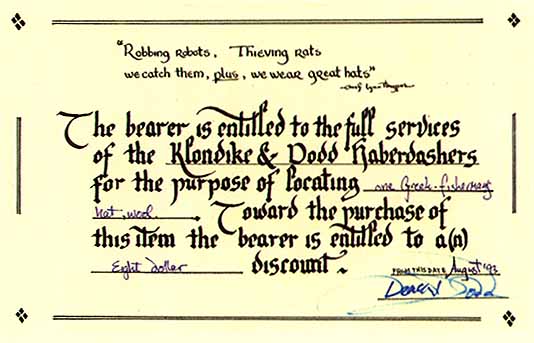 "Robbing robots, Thieving rats
we catch them, plus, we wear great hats"
The bearer is entitled to the full services
of the Klondike & Dodd Haberdashers
for the purpose of locating one Greek-fisherman's
hat, wool. Toward the purchase of
this item the bearer is entitled to a(n)
Eight dollar discount.
FROM THIS DATE August '93
Dodd